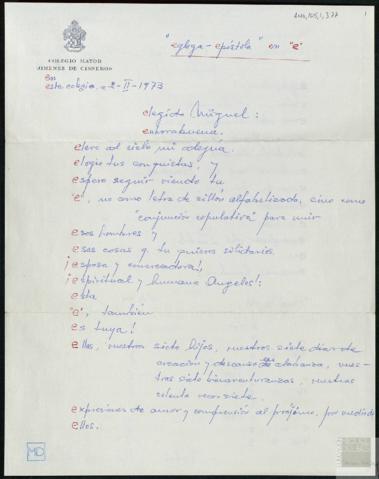 "egloga-epístola" en "e"
COLEGIO MAYOR
JIMENEZ DE CISNEROS
En
este colegio, a 2-II-1973
elegido Miguel:
enhorabuena.
elevo al cielo mi alegría.
elogio tus conquistas, y
espero seguir viendo tu
"e", no como letra de sillón alfabetizado, sino como
"conjunción copulativa" para unir
esos hombres y
esas cosas q. tu quieres solidarios.
¡esposa y enmarcadora!,
¡espiritual y humana Angeles!:
esta
"e", también
es tuya!
ellos, vuestros siete hijos, vuestros siete días de
creación y descanso de alabanza, vues-
tras siete bienaventuranzas, vuestras
setenta veces siete.
expresiones de amor y comprensión al prójimo, por medio de
ellos.
MD